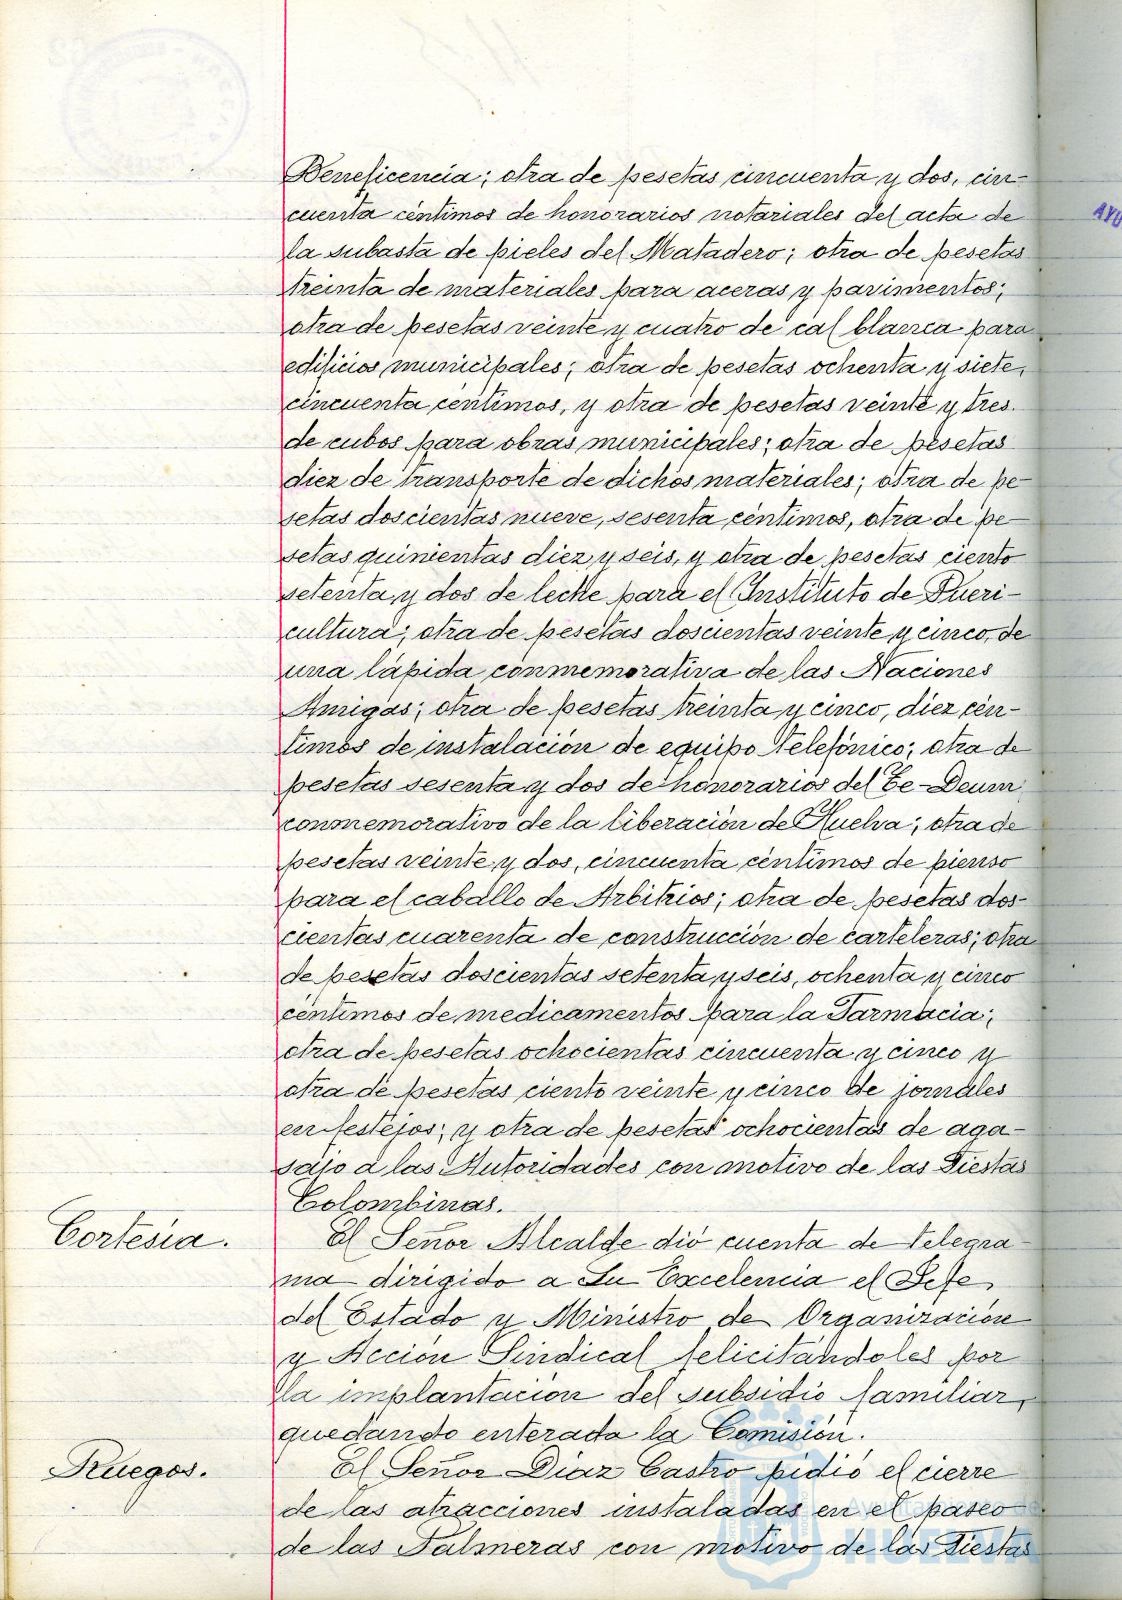 Beneficencia; otra de pesetas cincuenta y dos, cin-
cuenta céntimos de honorarios notariales del acta de
la subasta de pieles del Matadero; otra de pesetas
treinta de materiales para aceras y pavimentos;
otra de pesetas veinte y cuatro de cal blanca para
edificios municipales; otra de pesetas ochenta y siete,
cincuenta céntimos, y otra de pesetas veinte y tres.
de cubos para obras municipales; otra de pesetas
diez de transporte de dichos materiales; otra de pe-
setas doscientas nueve, sesenta céntimos, otra de pe-
setas quinientas diez y seis, y otra de pesetas ciento
setenta y dos de leche para el Instituto de Pueri-
cultura; otra de pesetas doscientas veinte y cinco, de
una lápida conmemorativa de las Naciones
Amigas; otra de pesetas treinta y cinco, diez cén-
timos de instalación de equipo telefónico; otra de
pesetas sesenta y dos de honorarios del Te-Deum
conmemorativo de la liberación de Huelva; otra de
pesetas veinte y dos, cincuenta céntimos de pienso
para el caballo de Arbitrios; otra de pesetas dos-
cientas cuarenta de construcción de carteleras; otra
de pesetas doscientas setenta y seis, ochenta y cinco
céntimos de medicamentos para la Farmacia;
otra de pesetas ochocientas cincuenta y cinco y
otra de pesetas ciento veinte y cinco de jornales
en festejos; y otra de pesetas ochocientas de aga-
sajo a las Autoridades con motivo de las Fiestas
Colombinas.
Cortesía. El Señor Alcalde dió cuenta de telegra-
ma dirigido a Su Excelencia el Jefe
del Estado y Ministro de Organización
y Acción Sindical felicitándoles por
la implantación del subsidio familiar,
quedando enterada la Comisión.
Ruegos. El Señor Díaz Castro pidió el cierre
de las atracciones instaladas en el paseo
de las Palmeras con motivo de las Fiestas